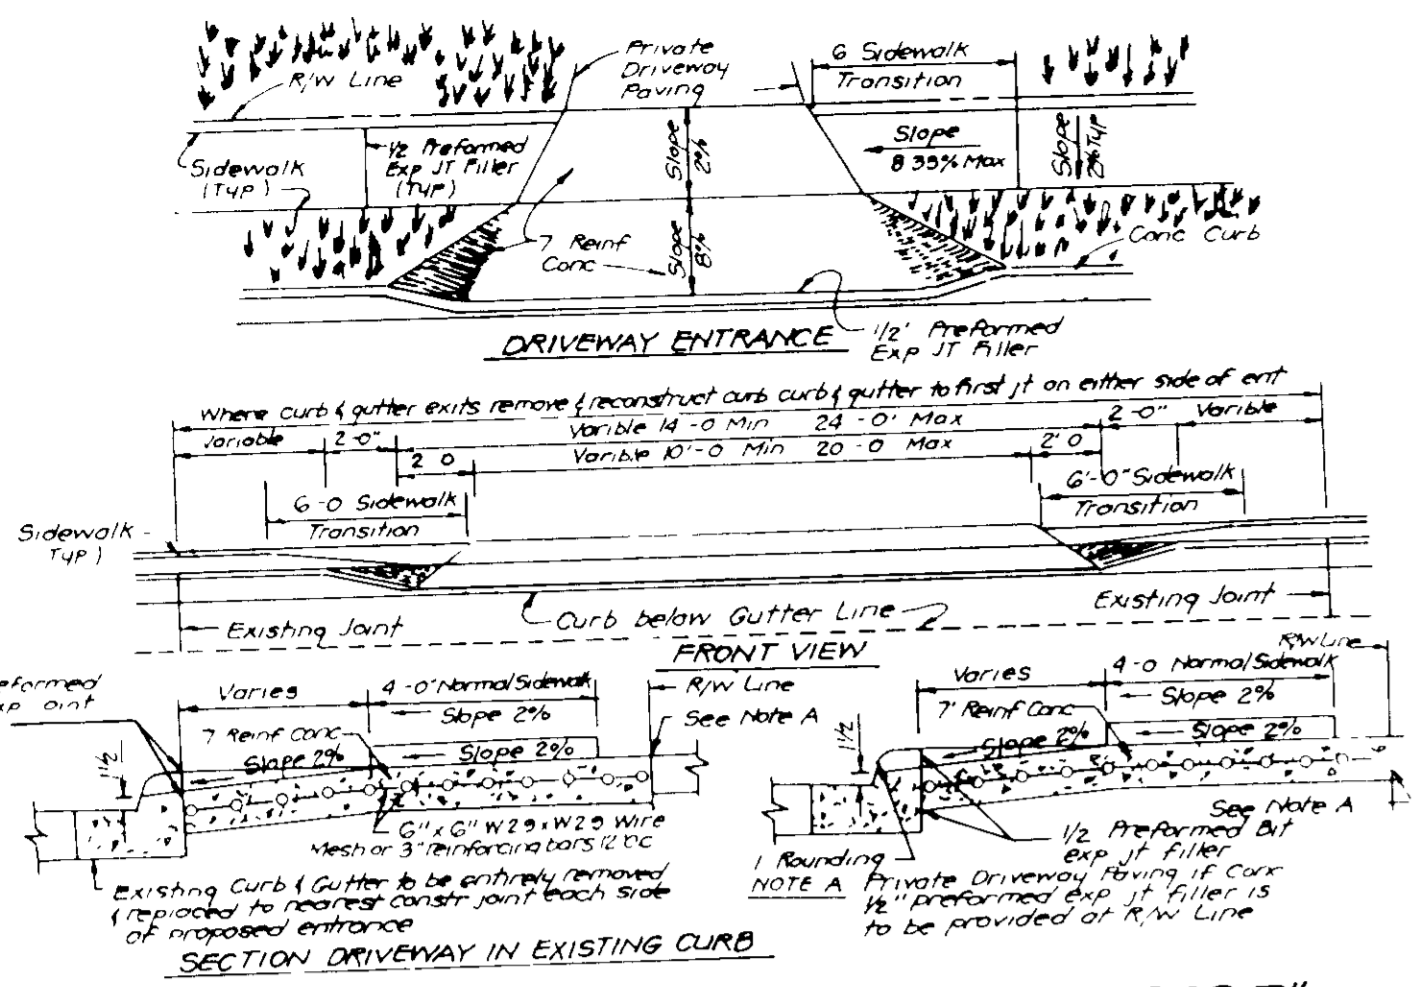 R/W Line
Private
Driveway
Paving
6 Sidewalk
Transition
Sidewalk
(Typ)
1/2 Preformed
Exp JT Filler
(Typ)
Slope
2%
Slope
8 33% Max
Slope
2% Typ
7 Reinf
Conc
Slope
8%
Conc Curb
DRIVEWAY ENTRANCE
1/2' Preformed
Exp JT Filler
Where curb & gutter exits remove & reconstruct curb curb & gutter to first jt on either side of ent
Variable
2-0"
Varible 14-0 Min 24-0' Max
2-0"
Varible
2 0
Varible 10'-0 Min 20-0 Max
2' 0
6-0 Sidewalk
Transition
6'-0" Sidewalk
Transition
Sidewalk
Typ)
Existing Joint
Curb below Gutter Line
Existing Joint
FRONT VIEW
eformed
xp oint
Varies
4-0' Normal Sidewalk
Slope 2%
R/W Line
See Note A
7 Reinf Conc
Slope 2%
Slope 2%
1 1/2
6" x 6" W29 x W29 Wire
Mesh or 3" reinforcing bars 12"OC
Existing Curb & Gutter to be entirely removed
& replaced to nearest constr joint each side
of proposed entrance
SECTION DRIVEWAY IN EXISTING CURB
R/W Line
Varies
4-0 Normal Sidewalk
Slope 2%
7' Reinf Conc
Slope 2%
Slope 2%
1 1/2
6
See Note A
1/2 Preformed Bit
exp jt filler
1 Rounding
NOTE A Private Driveway Paving if Conc
1/2" preformed exp jt filler is
to be provided at R/W Line